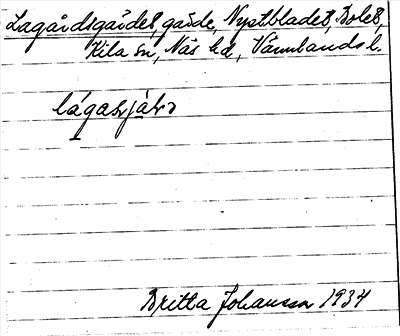 Lagårdsgärdet, gärde, Nystbladet, Bolet,
Kila sn, Näs hd, Värmlands l.
Britta Johansson 1934